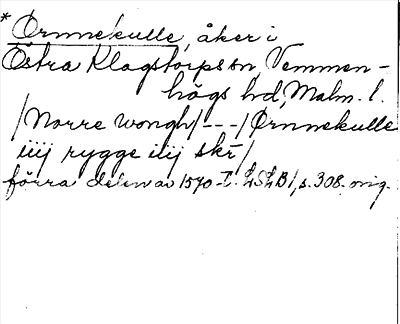 * Örnnekulle, åker i
Östra Klagstorps sn, Vemmen-
högs hd, Malm. l.
/Norre wongh/---/Ørnnekulle
iiij rygge iiij skr/
förra delen av 1570-t. LSLB1, s. 308. orig.